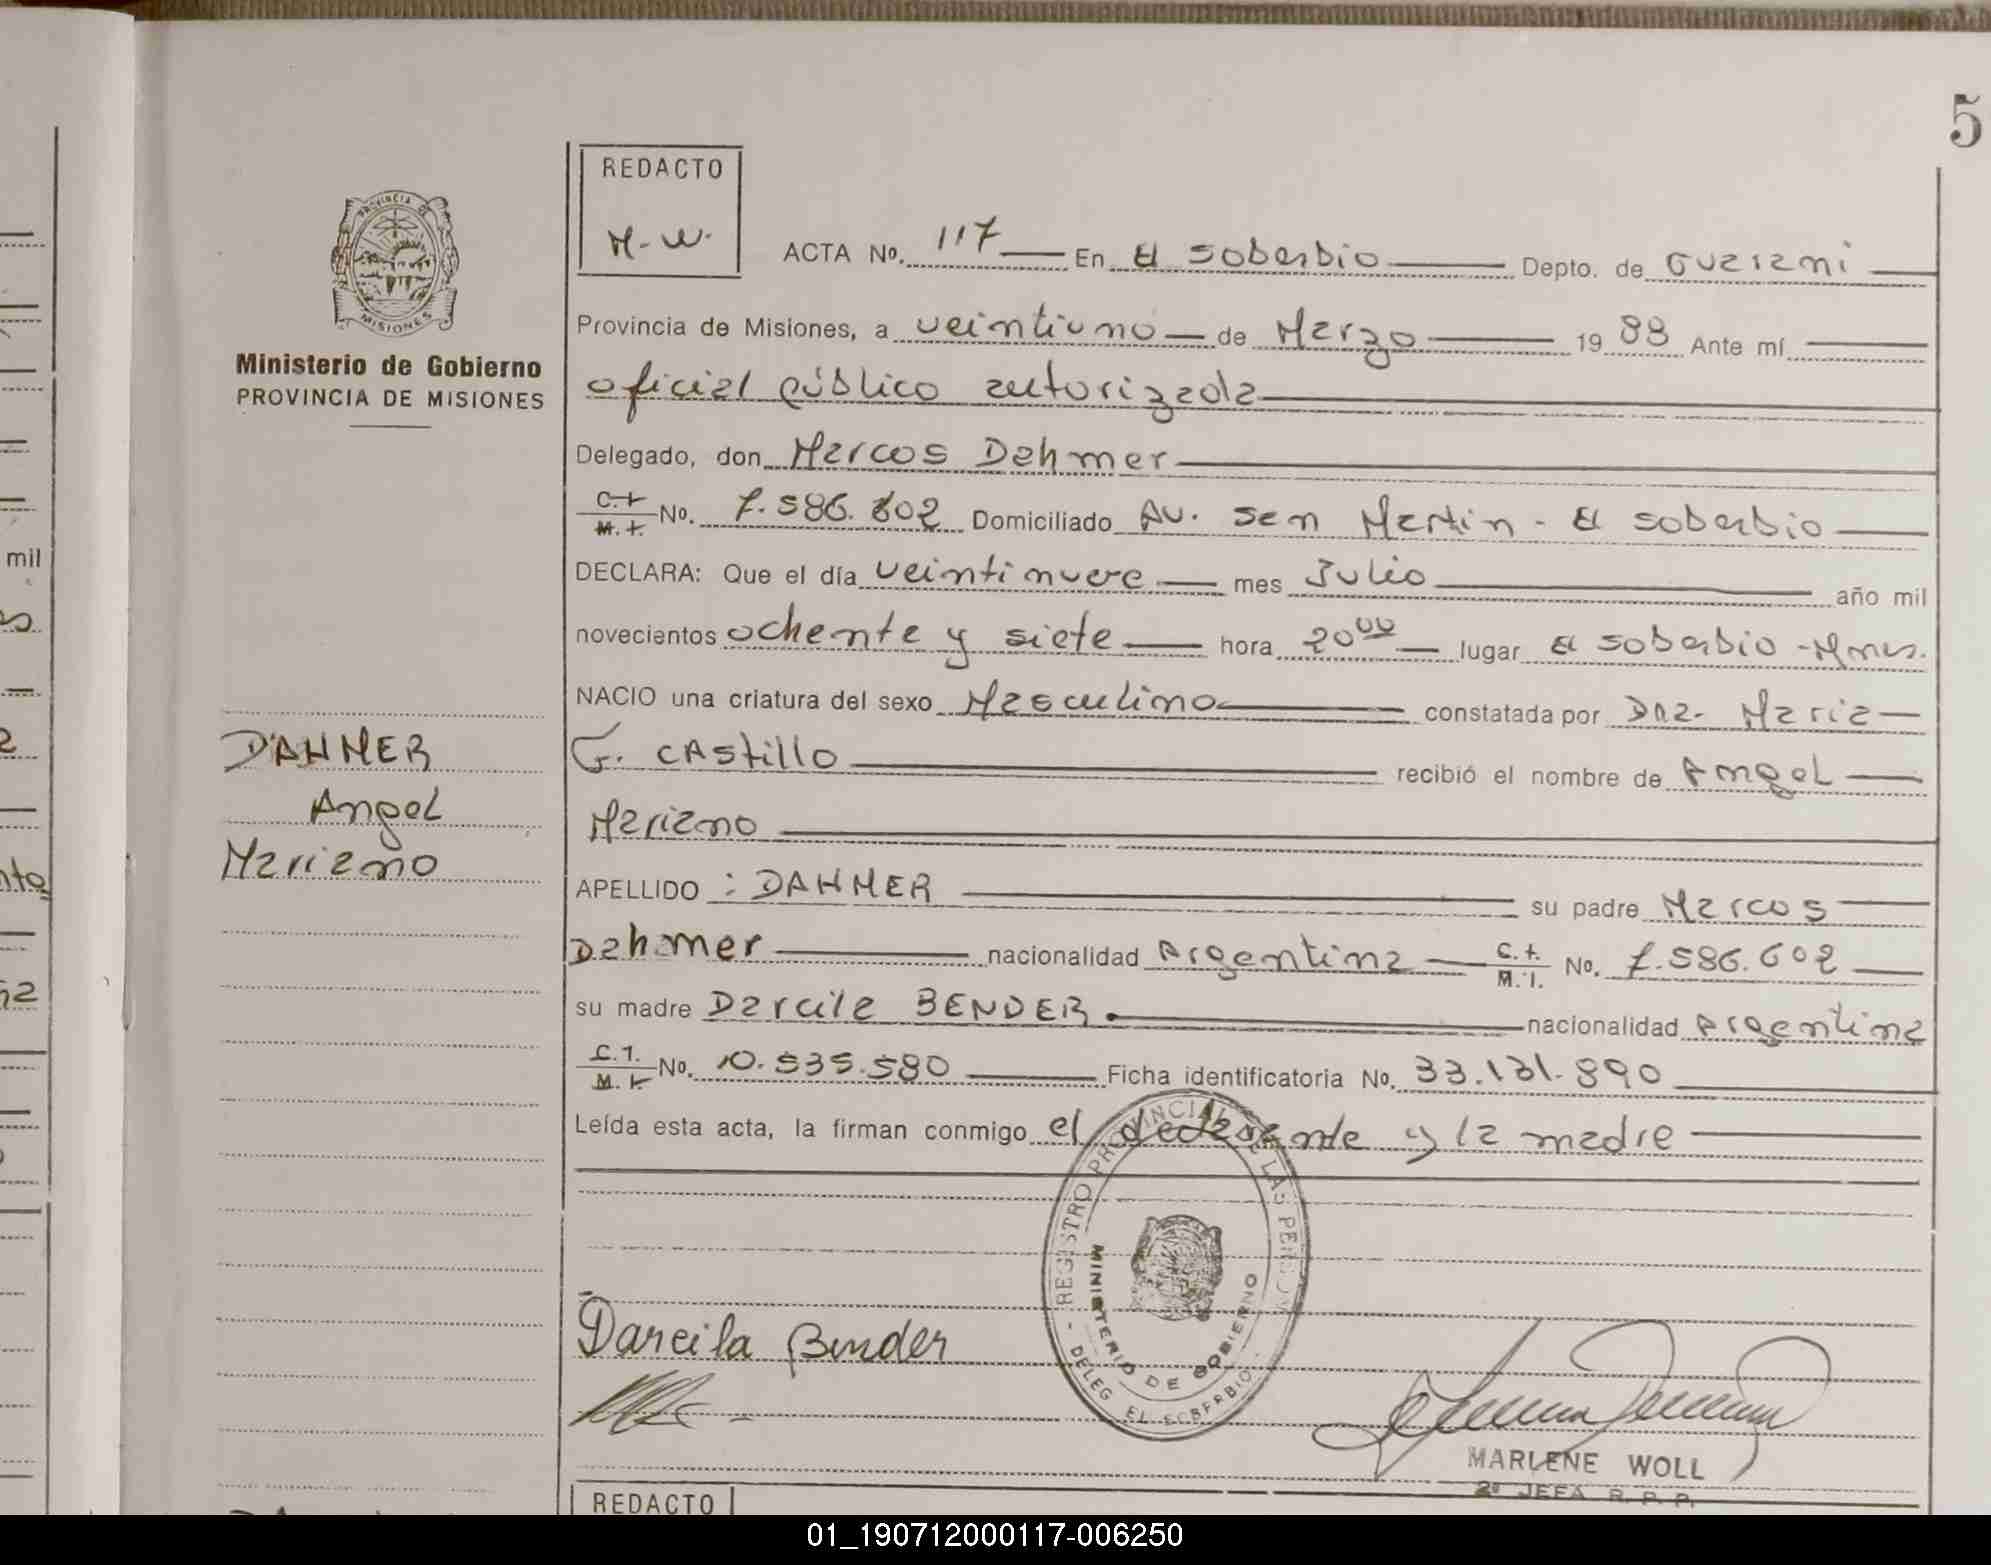 5
REDACTO
M-W.
PROVINCIA DE
MISIONES
Ministerio de Gobierno
PROVINCIA DE MISIONES
ACTA No. 117 En El Soberbio Depto. de Guarani
Provincia de Misiones, a veintiuno de Marzo 19 88 Ante mí
oficial público autorizada
Delegado, don Marcos Dahmer
C.I. M.I. No. 7.586.602 Domiciliado Av. San Martin - El Soberbio
DECLARA: Que el día veintinueve mes Julio año mil
novecientos ochenta y siete hora 20 00 lugar El Soberbio - Mnes.
NACIO una criatura del sexo Masculino constatada por Dra. Maria
G. CAstillo recibió el nombre de Angel
Mariano
APELLIDO : DAHMER su padre Marcos
Dahmer nacionalidad Argentina C.I. M.I. No. 7.586.602
su madre Darcila BENDER. nacionalidad Argentina
C.I. M.I. No. 10.535.580 Ficha identificatoria No. 33.131.890
Leída esta acta, la firman conmigo el declarante y la madre
DAHMER
Angel
Mariano
REGISTRO PROVINCIAL DE LAS PERSON
MINISTERIO DE GOBIERNO
- DELEG EL SOBERBIO -
Darcila Bender
MARLENE WOLL
2º JEFA R. P. P.
REDACTO
mil
01_190712000117-006250